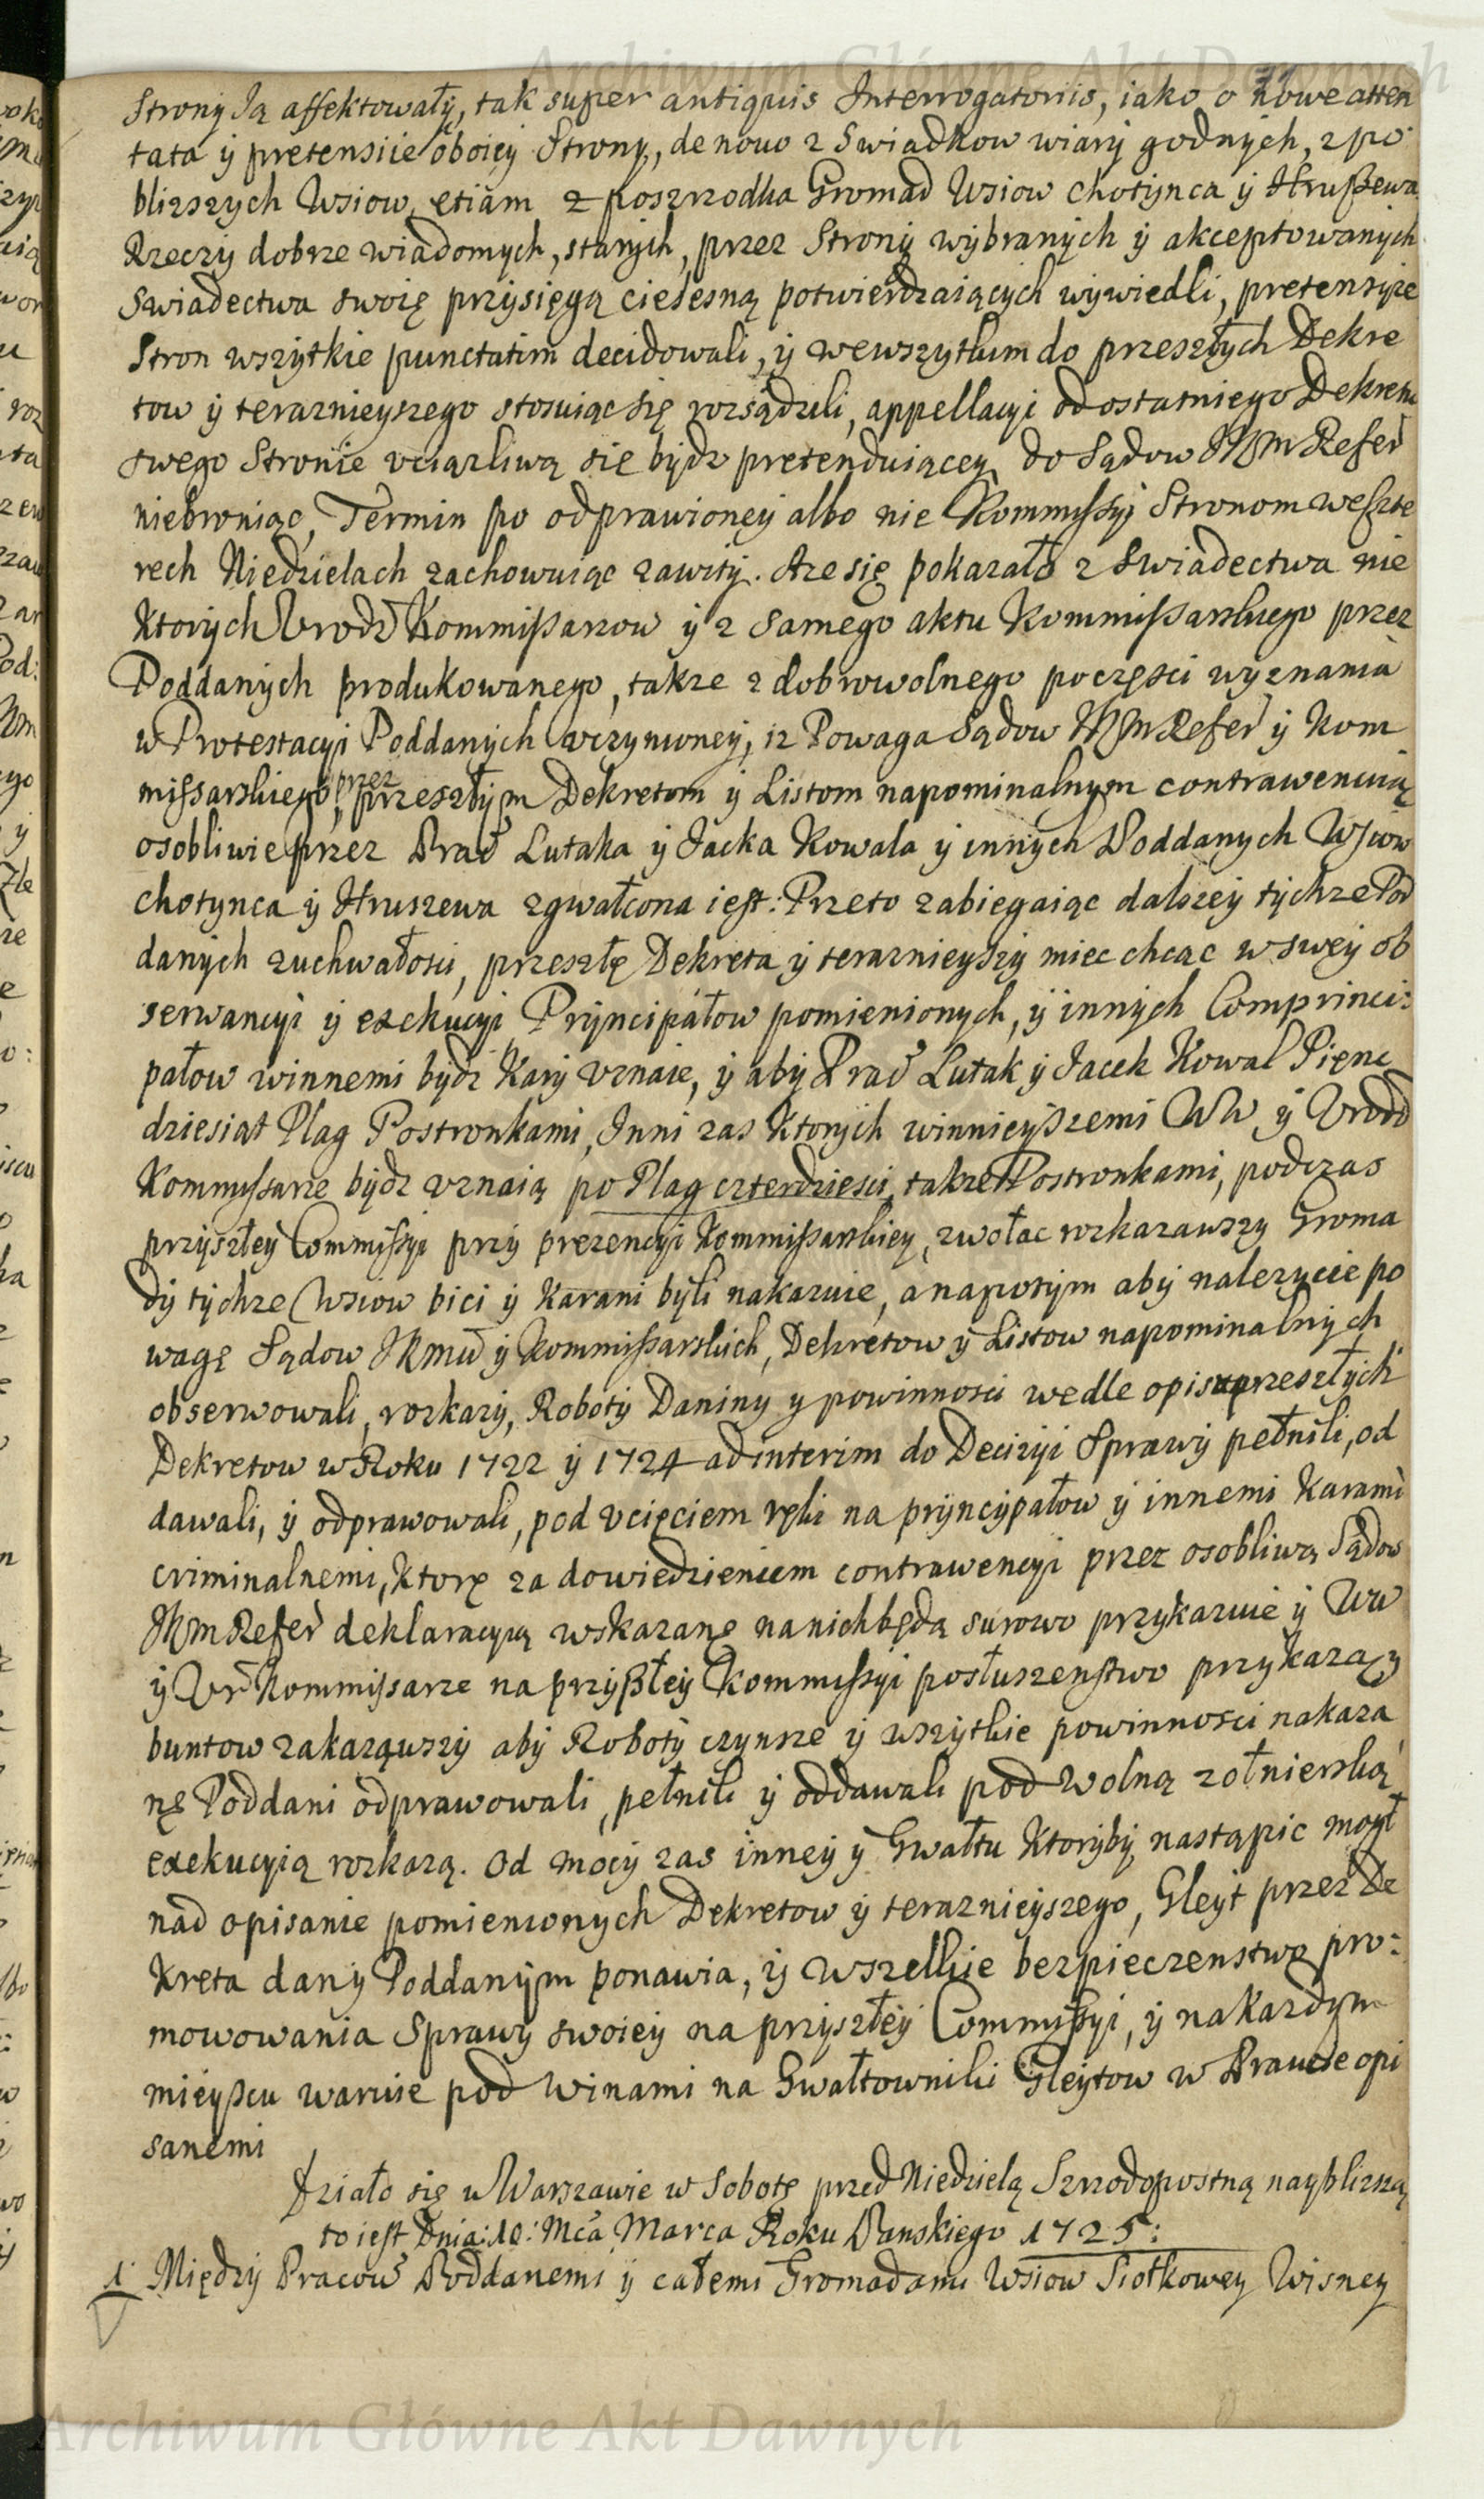 Strony Ją affektowały, tak super antiquis Interrogatoriis, iako o nowe atten
tata ÿ pretensiie oboiey Strony, de novo z Swiadkow wiary godnÿch, z po
blizszych Wsiow, etiam z poszrzodka Gromad Wsiow Chotynca ÿ Hruszewa
Rzeczy dobrze wiadomych, starÿch, przez Strony wÿbranÿch ÿ akceptowanÿch
Swiadectwa swoię przÿsięgą cielesną potwierdzaiącÿch wÿwiedli, pretensyie
Stron wszÿtkie punctatim decidowali, ÿ wewszytkim do przeszłÿch Dekre
tow ÿ teraznieyszego stosuiąc się rozsądzili, appellacyi od ostatniego Dekretu
swego Stronie uciązliwą się bÿdz pretenduiącey do Sądow JKM Refer
niebroniąc, Termin po odprawioney albo nie Kommissyi Stronom weszte
rech Niedzielach zachowuiąc zawitÿ. Aze się pokazało z Swiadectwa nie
ktorÿch Urodz Kommissarzow ÿ z samego aktu Kommissarskiego przez
Poddanÿch produkowanego, takze z dobrowolnego poczęsci wÿznania
w Protestacyi Poddanych uczynioney, iz Powaga Sądow JKM Refer ÿ Kom
missarskiego, przez przeszłÿm Dekretom ÿ Listom napominalnym contrawencią
osobliwie przez Prac Lutaka ÿ Jacka Kowala ÿ innÿch Poddanych Wsiow
Chotynca ÿ Hruszewa zgwałcona iest: Przeto zabiegaiąc dalszey tÿchze Pod
danÿch zuchwałosci, przeszłę Dekreta ÿ teraznieyszÿ miec chcąc w swey ob
serwancyi ÿ exekucyi Prÿncipałow pomienionych, ÿ innÿch Comprinci:
pałow winnemi bÿdz Karÿ uznaie, ÿ abÿ Prac Lutak ÿ Jacek Kowal Pięnc
dziesiąt Plag Postronkami, Inni zas Ktorÿch winnieÿszemi WW ÿ Urodz
Kommissarze bÿdz uznaią po Plag czterdziesci, takze Postronkami, podczas
przÿszłeÿ Commissyi przÿ prezencyi Kommissarskiey, zwołac rozkazawszy Groma
dÿ tÿchze Wsiow bici ÿ karani bÿli nakazuie, a napotÿm abÿ nalezycie po
wagę Sądow JKMci ÿ Kommissarskich, Dekretow ÿ Listow napominalnÿch
obserwowali, rozkazÿ, Robotÿ Daninÿ y powinnosci wedle opisu przeszłÿch
Dekretow w Roku 1722 ÿ 1724 ad interim do Decizyi Sprawÿ pełnili, od
dawali, ÿ odprawowali, pod ucięciem ręki na prÿncÿpałow ÿ innemi karami
criminalnemi, ktorę za dowiedzieniem contrawencyi przez osobliwą Sądow
JKM Refer deklaracyią wskazanę na nich będą surowo przykazuie ÿ WW
ÿ Ur Kommissarze na przÿszłeÿ Kommissyi posłuszenstwo przykazązy
buntow zakaząwszÿ abÿ Robotÿ czynsze ÿ wszÿtkie powinnosci nakaza
nę Poddani odprawowali, pełnili ÿ oddawali pod wolną zołnierską
exekucyią rozkazą. Od mocÿ zas inneÿ ÿ Gwałtu Ktorÿbÿ nastąpic mogł
nad opisanie pomienionych Dekretow ÿ teraznieÿszego, Gleÿt przez De
kreta danÿ Poddanÿm ponawia, ÿ wszelkie bezpieczenstwo pro:
mowowania Sprawÿ swoieÿ na przÿszłeÿ Commissyi, ÿ na kazdÿm
mieÿscu waruie pod winami na Gwałtowniki Gleÿtow w Prawie opi
sanemi
Działo się w Warszawie w Sobotę przed Niedzielą Szrzodopostną nayblizszą
to iest Dnia: 10: Mca Marca Roku Panskiego 1725:
1 Międzÿ Pracow Poddanemi ÿ całemi Gromadami Wsiow Siołkowey Wisney